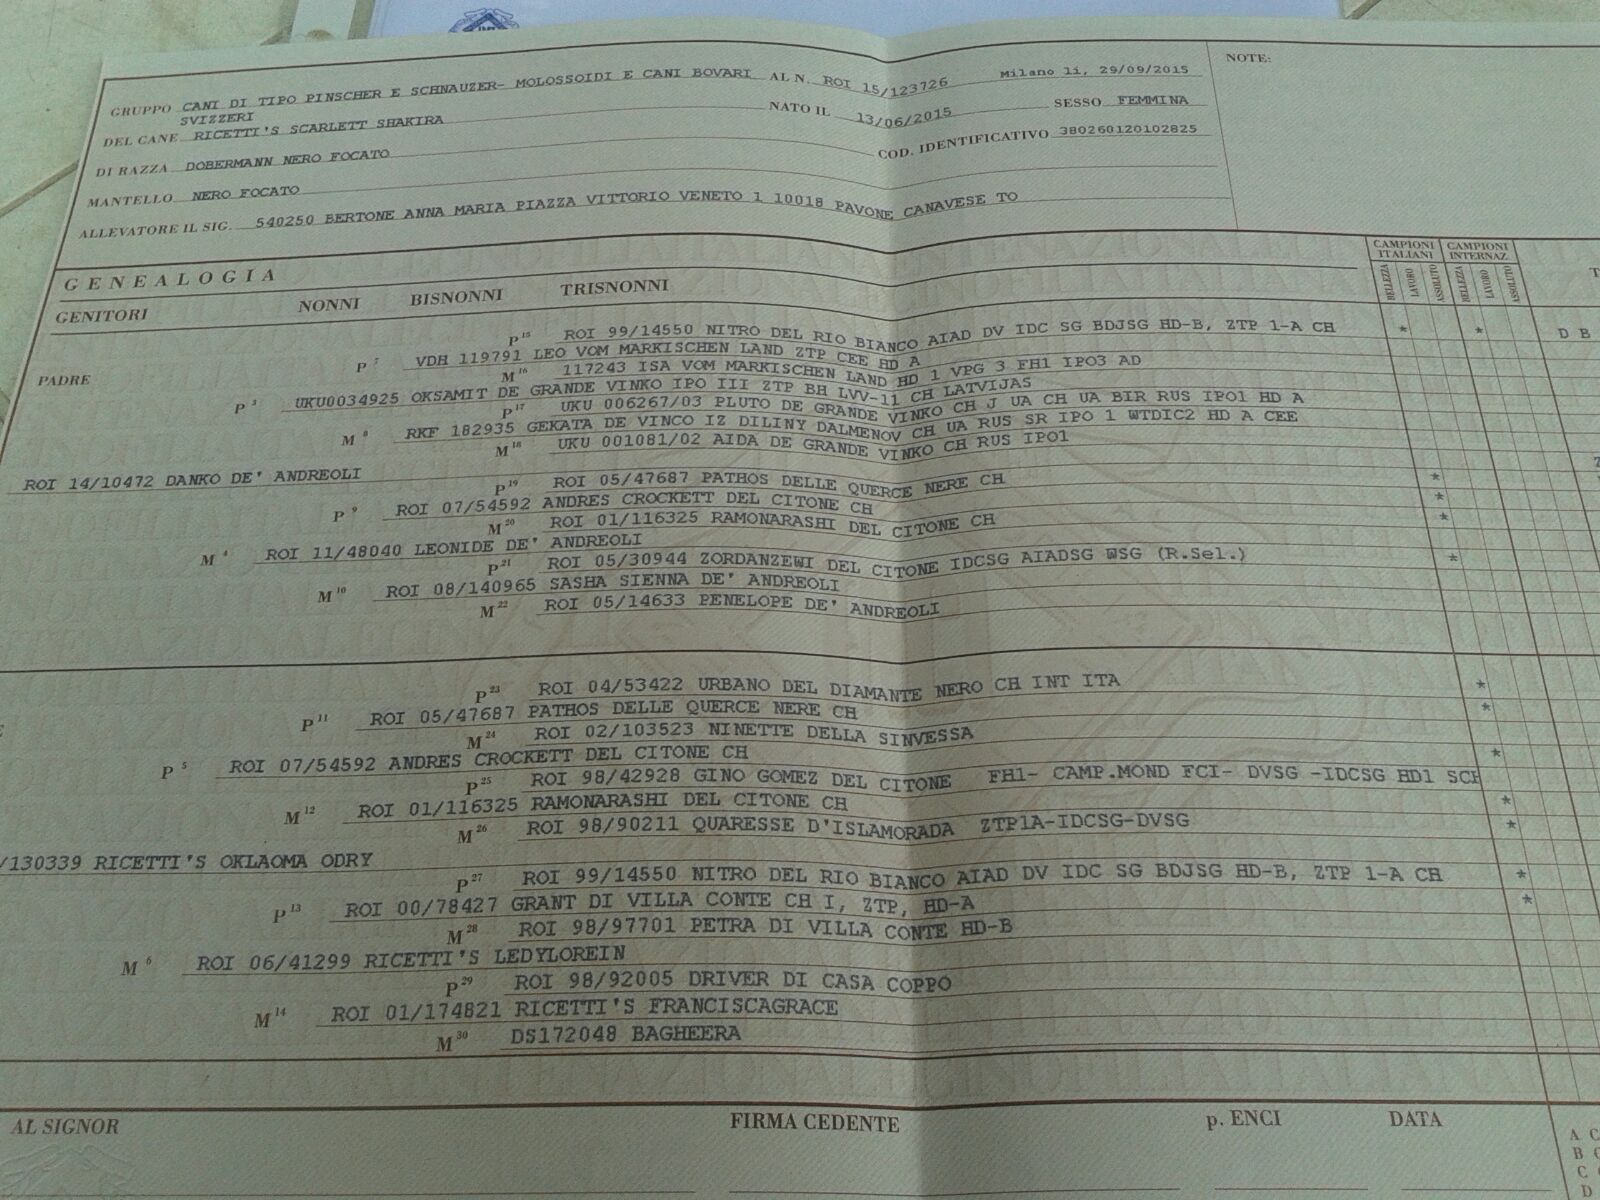 NOTE:
GRUPPO CANI DI TIPO PINSCHER E SCHNAUZER- MOLOSSOIDI E CANI BOVARI AL N. ROI 15/123726 Milano li, 29/09/2015
SVIZZERI
DEL CANE RICETTI'S SCARLETT SHAKIRA NATO IL 13/06/2015 SESSO FEMMINA
DI RAZZA DOBERMANN NERO FOCATO COD. IDENTIFICATIVO 380260120102825
MANTELLO NERO FOCATO
ALLEVATORE IL SIG. 540250 BERTONE ANNA MARIA PIAZZA VITTORIO VENETO 1 10018 PAVONE CANAVESE TO
GENEALOGIA
CAMPIONI ITALIANI CAMPIONI INTERNAZ.
BELLEZZA LAVORO ASSOLUTO BELLEZZA LAVORO ASSOLUTO
GENITORI NONNI BISNONNI TRISNONNI
P 15 ROI 99/14550 NITRO DEL RIO BIANCO AIAD DV IDC SG BDJSG HD-B, ZTP 1-A CH * * D B
P 7 VDH 119791 LEO VOM MARKISCHEN LAND ZTP CEE HD A
PADRE
M 16 117243 ISA VOM MARKISCHEN LAND HD 1 VPG 3 FH1 IPO3 AD
P 3 UKU0034925 OKSAMIT DE GRANDE VINKO IPO III ZTP BH LVV-11 CH LATVIJAS
P 17 UKU 006267/03 PLUTO DE GRANDE VINKO CH J UA CH UA BIR RUS IPO1 HD A
M 8 RKF 182935 GEKATA DE VINCO IZ DILINY DALMENOV CH UA RUS SR IPO 1 WTDIC2 HD A CEE
M 18 UKU 001081/02 AIDA DE GRANDE VINKO CH RUS IPO1
ROI 14/10472 DANKO DE' ANDREOLI
P 19 ROI 05/47687 PATHOS DELLE QUERCE NERE CH *
P 9 ROI 07/54592 ANDRES CROCKETT DEL CITONE CH *
M 20 ROI 01/116325 RAMONARASHI DEL CITONE CH *
M 4 ROI 11/48040 LEONIDE DE' ANDREOLI
P 21 ROI 05/30944 ZORDANZEWI DEL CITONE IDCSG AIADSG WSG (R.Sel.) *
M 10 ROI 08/140965 SASHA SIENNA DE' ANDREOLI
M 22 ROI 05/14633 PENELOPE DE' ANDREOLI
P 23 ROI 04/53422 URBANO DEL DIAMANTE NERO CH INT ITA *
P 11 ROI 05/47687 PATHOS DELLE QUERCE NERE CH *
M 24 ROI 02/103523 NINETTE DELLA SINVESSA
P 5 ROI 07/54592 ANDRES CROCKETT DEL CITONE CH *
P 25 ROI 98/42928 GINO GOMEZ DEL CITONE FH1- CAMP.MOND FCI- DVSG -IDCSG HD1 SCH
M 12 ROI 01/116325 RAMONARASHI DEL CITONE CH *
M 26 ROI 98/90211 QUARESSE D'ISLAMORADA ZTP1A-IDCSG-DVSG *
/130339 RICETTI'S OKLAOMA ODRY
P 27 ROI 99/14550 NITRO DEL RIO BIANCO AIAD DV IDC SG BDJSG HD-B, ZTP 1-A CH *
P 13 ROI 00/78427 GRANT DI VILLA CONTE CH I, ZTP, HD-A *
M 28 ROI 98/97701 PETRA DI VILLA CONTE HD-B
M 6 ROI 06/41299 RICETTI'S LEDYLOREIN
P 29 ROI 98/92005 DRIVER DI CASA COPPO
M 14 ROI 01/174821 RICETTI'S FRANCISCAGRACE
M 30 DS172048 BAGHEERA
AL SIGNOR FIRMA CEDENTE p. ENCI DATA
A C
B
C
D